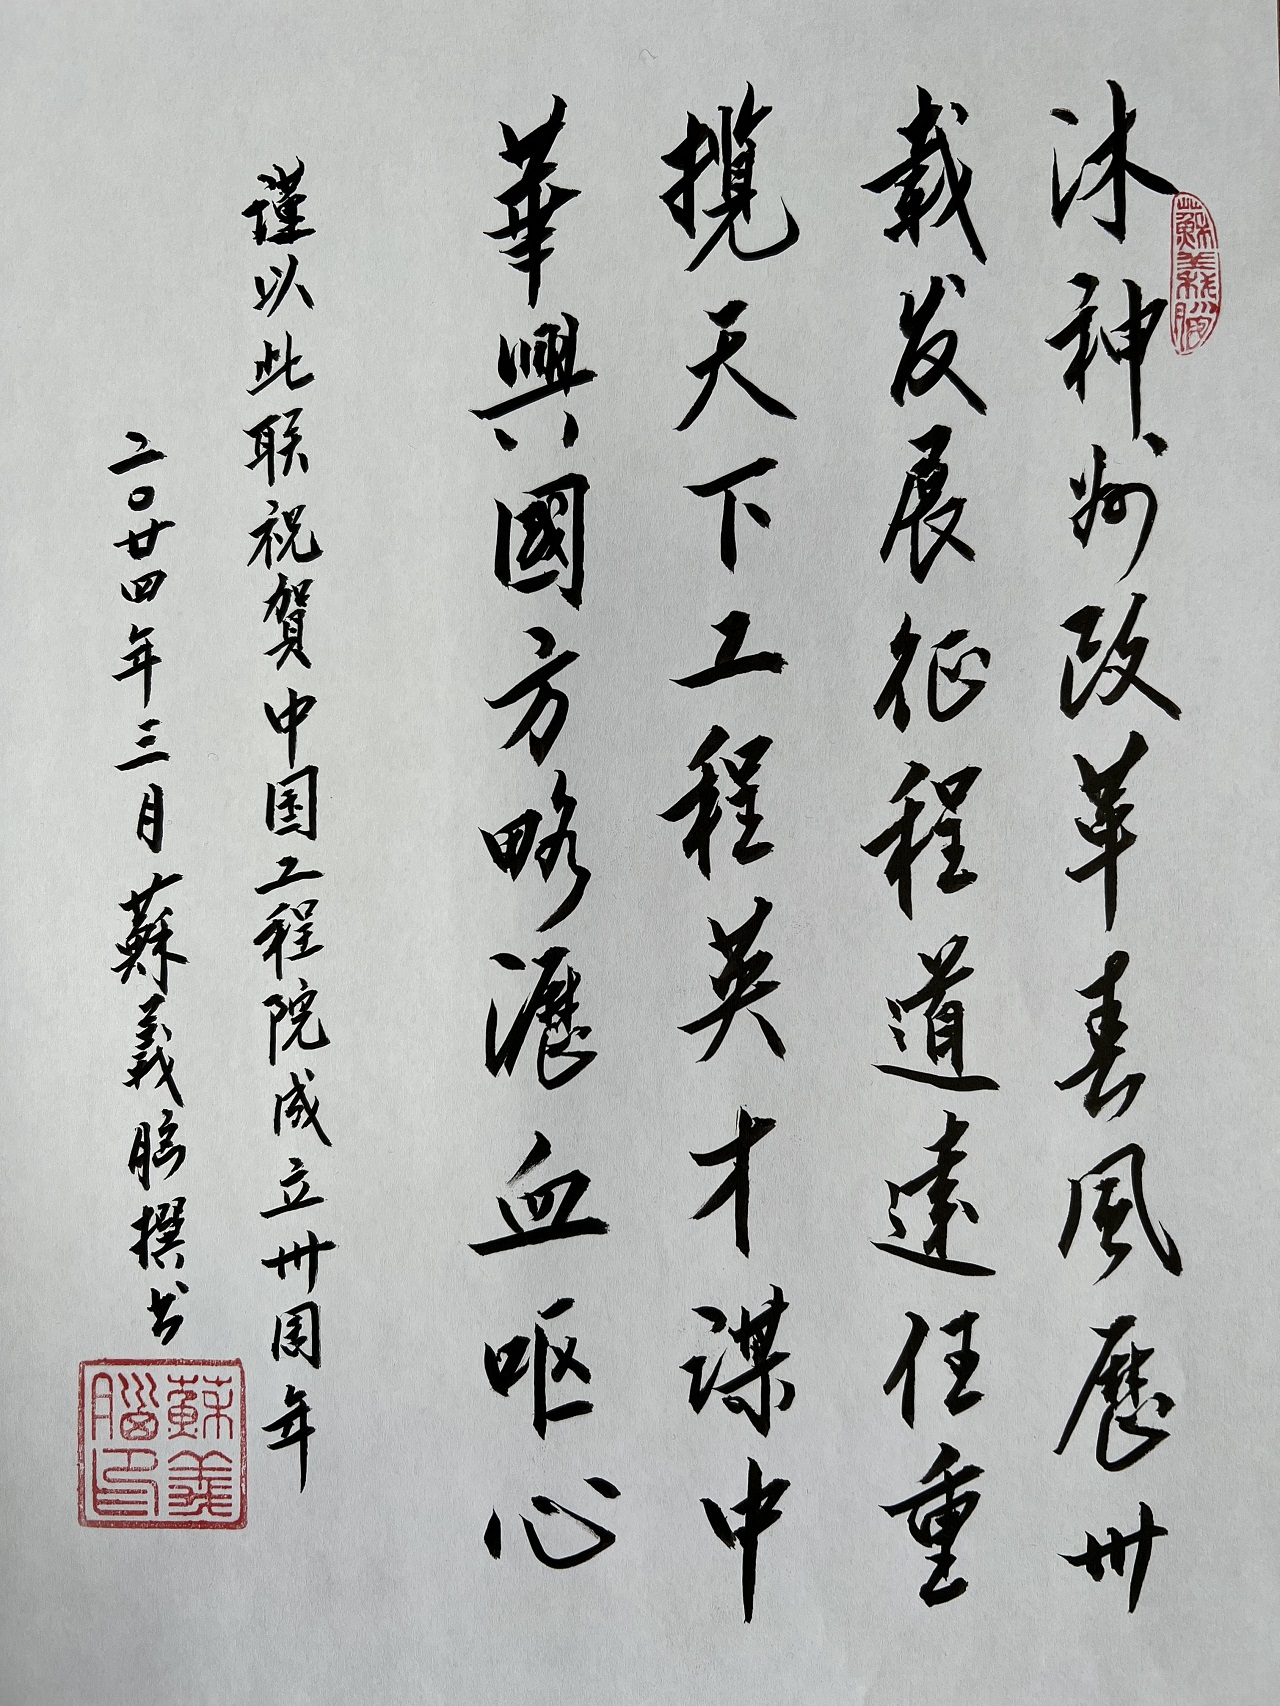 沐神州改革春风歷卅
載发展征程道远任重
攬天下工程英才謀中
華興國方略瀝血呕心
谨以此联祝賀中国工程院成立卅周年
二〇廿四年三月蘇義脳撰书
蘇義腦
蘇義腦印